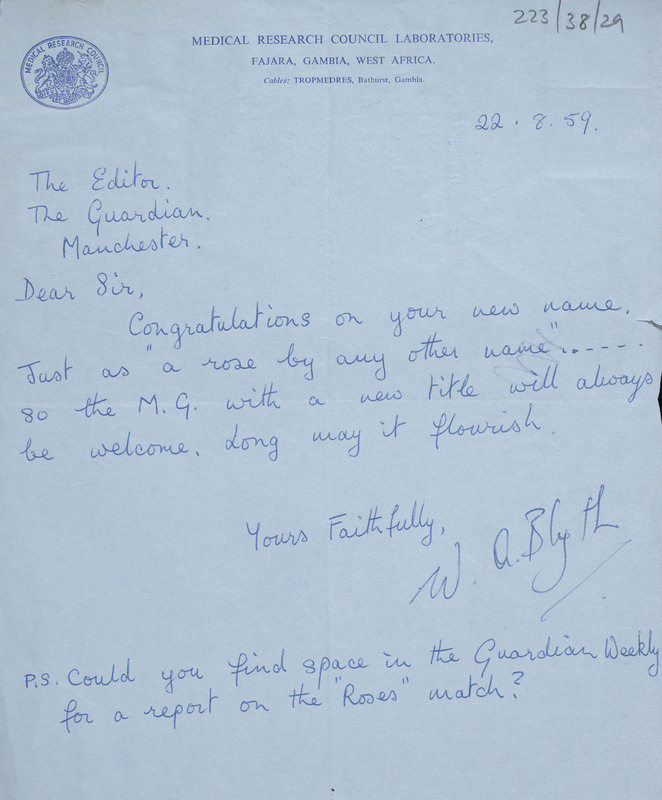 223/38/29
MEDICAL RESEARCH COUNCIL
MEDICAL RESEARCH COUNCIL LABORATORIES,
FAJARA, GAMBIA, WEST AFRICA.
Cables: TROPMEDRES, Bathurst, Gambia.
22.8.59.
The Editor.
The Guardian.
Manchester.
Dear Sir,
Congratulations on your new name.
Just as "a rose by any other name".----.
so the M.G. with a new title will always
be welcome. Long may it flourish.
Yours Faithfully,
W. A. Blyth
P.S. Could you find space in the Guardian Weekly
for a report on the "Roses" match?